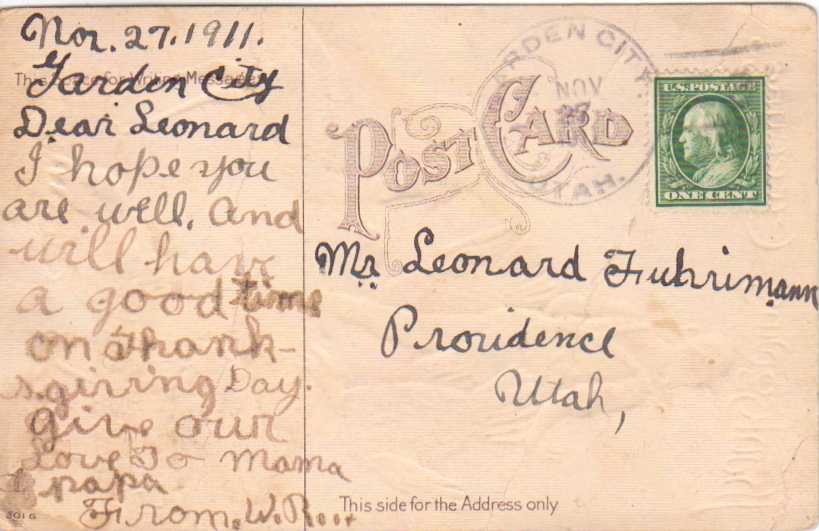 Nov. 27. 1911.
This Space for Writing Messages
Garden City
Dear Leonard
I hope you
are well. and
will have
a good time
on Thank-
sgiving Day.
give our
Love To Mama
& papa
From. W.
3016
POST CARD
GARDEN CITY
NOV
27
UTAH.
U.S. POSTAGE
ONE CENT
Mr. Leonard Fuhrimann
Providence
Utah,
This side for the Address only